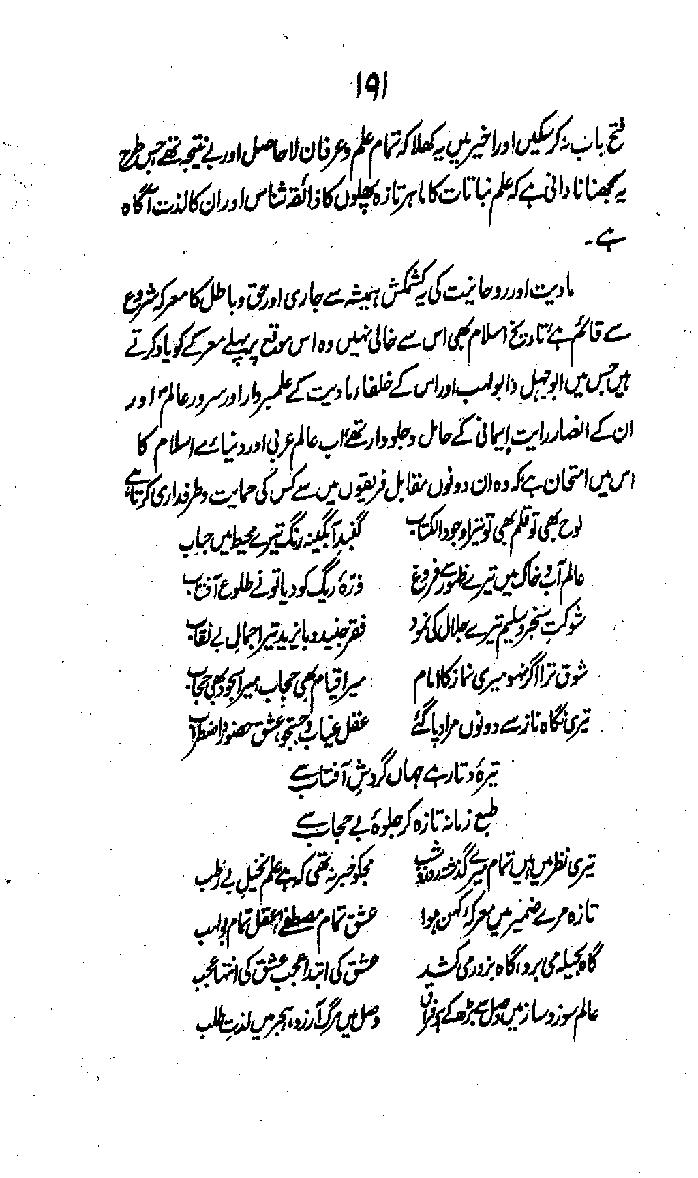 ۱۹۱
فتح باب نہ کر سکیں اور اخیر میں یہ کھلا کہ تمام علم و عرفان لا حاصل اور بے نتیجہ تھے جس طرح
یہ سمجھنا نادانی ہے کہ علم نباتات کا ماہر تازہ پھلوں کا ذائقہ شناس اور ان کا لذت آگاہ
ہے۔
مادیت اور روحانیت کی یہ کشمکش ہمیشہ سے جاری اور حق و باطل کا معرکہ شروع
سے قائم ہے تاریخ اسلام بھی اس سے خالی نہیں وہ اس موقع پر پہلے معرکے کو یاد کرتے
ہیں جس میں ابوجہل و ابولہب اور اس کے خلفاء مادیت کے علمبردار اور سرور عالمؐ اور
ان کے انصار رایت ایمانی کے حامل و جلو دار تھے، اب عالم عربی اور دنیائے اسلام کا
اس میں امتحان ہے کہ وہ ان دونوں مقابل فریقوں میں سے کس کی حمایت و طرفداری کرتا ہے
لوح بھی تو قلم بھی تو تیرا وجود الکتاب گنبد آبگینہ رنگ تیرے محیط میں حباب
عالم آب و خاک میں تیرے ظہور سے فروغ ذرۂ ریگ کو دیا تو نے طلوع آفتاب
شوکت سنجر و سلیم تیرے جلال کی نمود فقر جنید و بایزید تیرا جمال بے نقاب
شوق ترا اگر نہ ہو میری نماز کا امام میرا قیام بھی حجاب میرا سجود بھی حجاب
تیری نگاہ ناز سے دونوں مراد پا گئے عقل غیاب و جستجو، عشق حضور و اضطراب
تیرہ و تار ہے جہاں گردش آفتاب سے
طبع زمانہ تازہ کر جلوۂ بے حجاب سے
تیری نظر میں ہیں تمام میرے گذشتہ روز و شب مجکو خبر نہ تھی کہ ہے علم نخیل بے رطب
تازہ مرے ضمیر میں معرکۂ کہن ہوا عشق تمام مصطفےٰ، عقل تمام بولہب
گاہ بحیلہ می برد، گاہ بزور می کشد عشق کی ابتدا عجب عشق کی انتہا عجب
عالم سوز و ساز میں وصل سے بڑھ کے ہے فراق وصل میں مرگ آرزو، ہجر میں لذت طلب